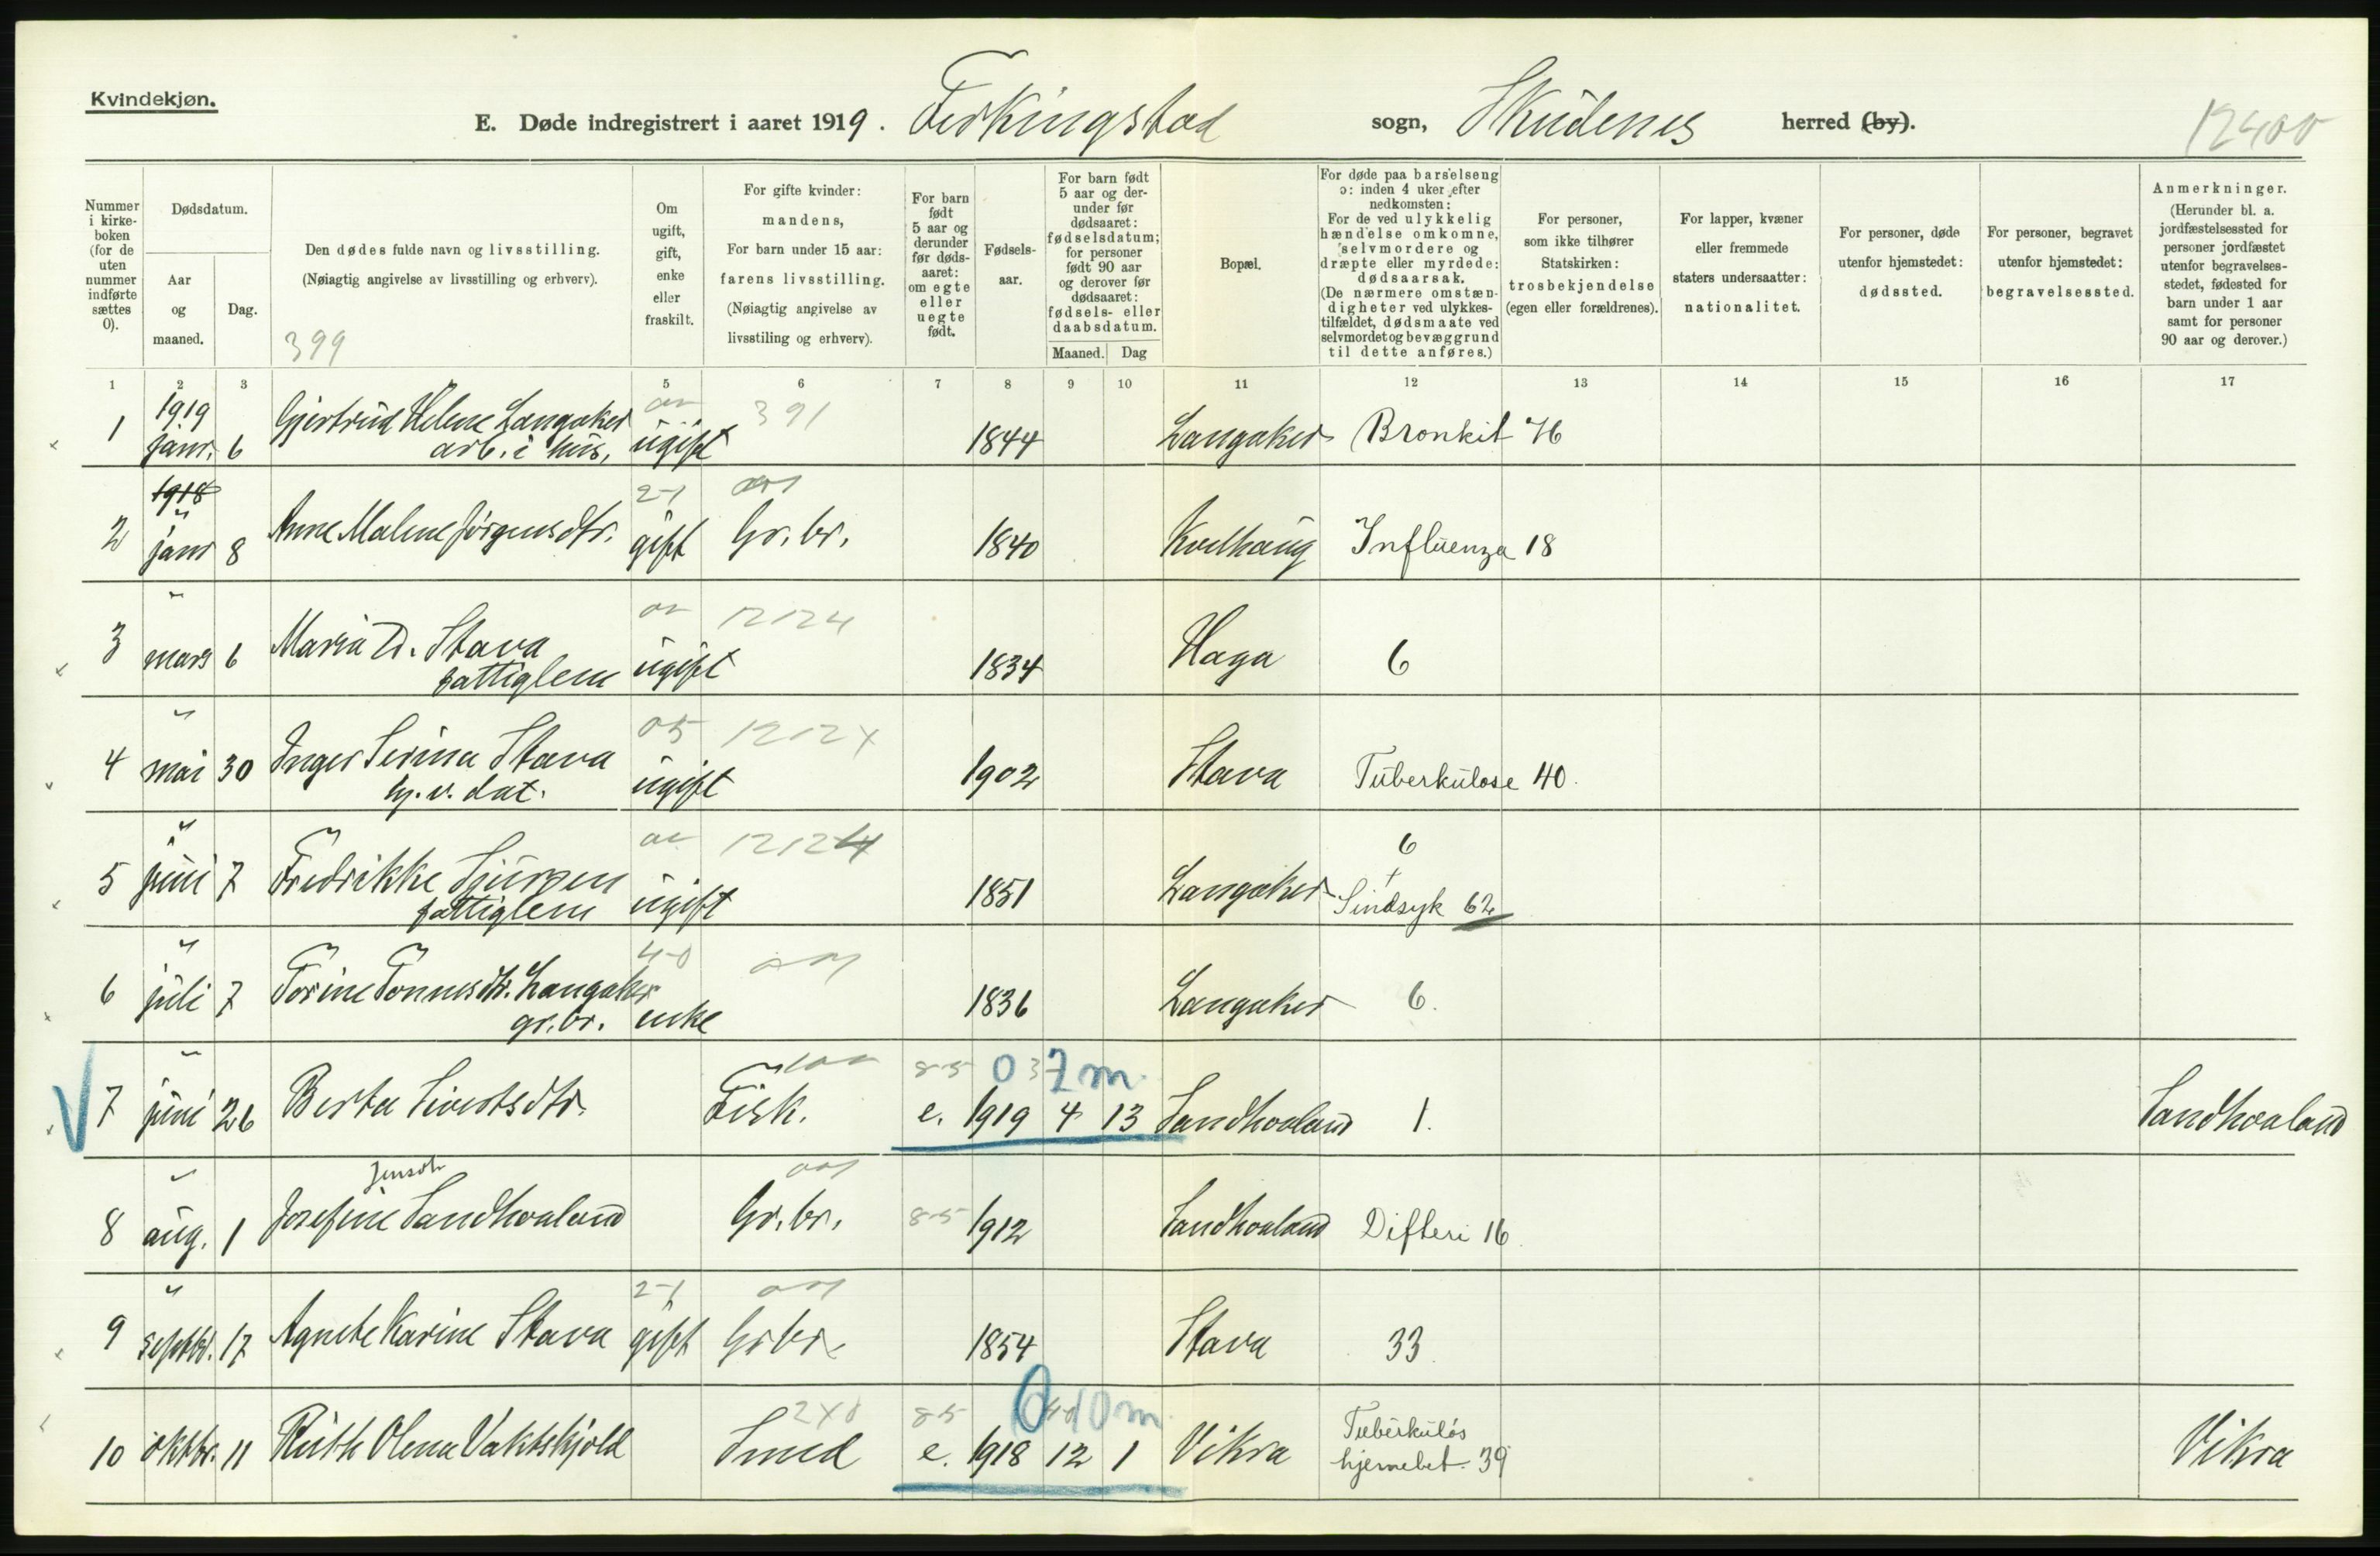 Kvindekjøn.
E. Døde indregistrert i aaret 1919. Ferkingstad sogn, Skudenes herred (by).
12400
Nummer i kirke-boken (for de uten nummer indførte sættes 0).
Dødsdatum.
Aar og maaned.
Dag.
Den dødes fulde navn og livsstilling.
(Nøiagtig angivelse av livsstilling og erhverv).
399
Om ugift, gift, enke eller fraskilt.
For gifte kvinder: mandens,
For barn under 15 aar: farens livsstilling.
(Nøiagtig angivelse av livsstiling og erhverv).
For barn født 5 aar og derunder før døds-aaret: om egte eller uegte født.
Fødsels-aar.
For barn født 5 aar og der-under før dødsaaret: fødselsdatum; for personer født 90 aar og derover før dødsaaret: fødsels- eller daabsdatum.
Maaned. Dag
Bopæl.
For døde paa barselseng ɔ: inden 4 uker efter nedkomsten:
For de ved ulykkelig hændelse omkomne, selvmordere og dræpte eller myrdede: dødsaarsak.
(De nærmere omstæn-digheter ved ulykkes-tilfældet, dødsmaate ved selvmordet og bevæggrund til dette anføres.)
For personer, som ikke tilhører Statskirken: trosbekjendelse (egen eller forældrenes).
For lapper, kvæner eller fremmede staters undersaatter: nationalitet.
For personer, døde utenfor hjemstedet: dødssted.
For personer, begravet utenfor hjemstedet: begravelsessted.
Anmerkninger.
(Herunder bl. a. jordfæstelsessted for personer jordfæstet utenfor begravelses-stedet, fødested for barn under 1 aar samt for personer 90 aar og derover.)
1 2 3 5 6 7 8 9 10 11 12 13 14 15 16 17
391
1 1919 Janr. 6 Gjertrud Helene Langaker arb. i hus, ugift 1844 Langaker Bronkit 46
1918
2-1
2 " janr 8 Anne Malene Jørgensdtr. gift Gr.br. 1840 Kvelhaug Influenza 18
12124
3 " mars 6 Maria D. Stava fattiglem ugift 1834 Haga 6
05 1212x
4 " mai 30 Inger Serina Stava hj. v. dat. ugift 1902 Stava Tuberkulose 40.
12124
5 " juni 7 Fredrikke Sjursen fattiglem ugift 1851 Langaker 6 + Sindsyk 62
4-0
6 " juli 7 Torine Tønnesdtr. Langaker gr.br. enke 1836 Langaker 6.
85 0 3 2 m.
7 " juni 26 Berta Sivertsdtr. Fisk. e. 1919 4 13 Sandhvaland 1. Sandhvaland
8 " aug. 1 Josefine Jensdtr Sandhvaland Gr.br. 85 1912 Sandhvaland Difteri 16.
2-1
9 " septbr. 17 Agnete Karine Stava gift Gr.br. 1854 Stava 33
2x0 85 0 10 m
10 oktbr. 11 Ruth Olena Vaktskjold Smed e. 1918 12 1 Vikra Tuberkuløs hjernebet. 39 Vikra